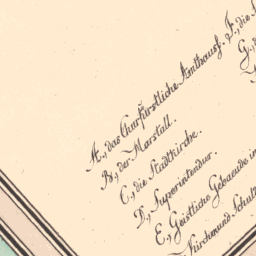 A., das Churfürstliche Amthauss. F., die
B., der Marstall. G., d
C., die Stadtkirche.
D., Superintendur.
E., Geistliche Gebaeude in